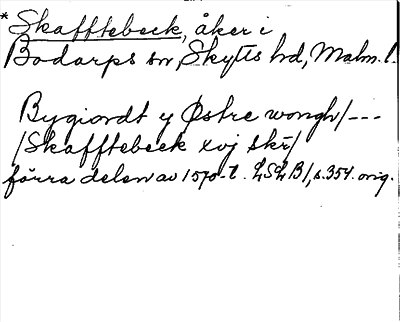 * Skafftebeck, åker i
Bodarps sn, Skytts hd, Malm. l.
Bygiordt y Østre wongh /---
/Skafftebeck xvj skr/
förra delen av 1570-t. LSLB/, s. 354. orig.